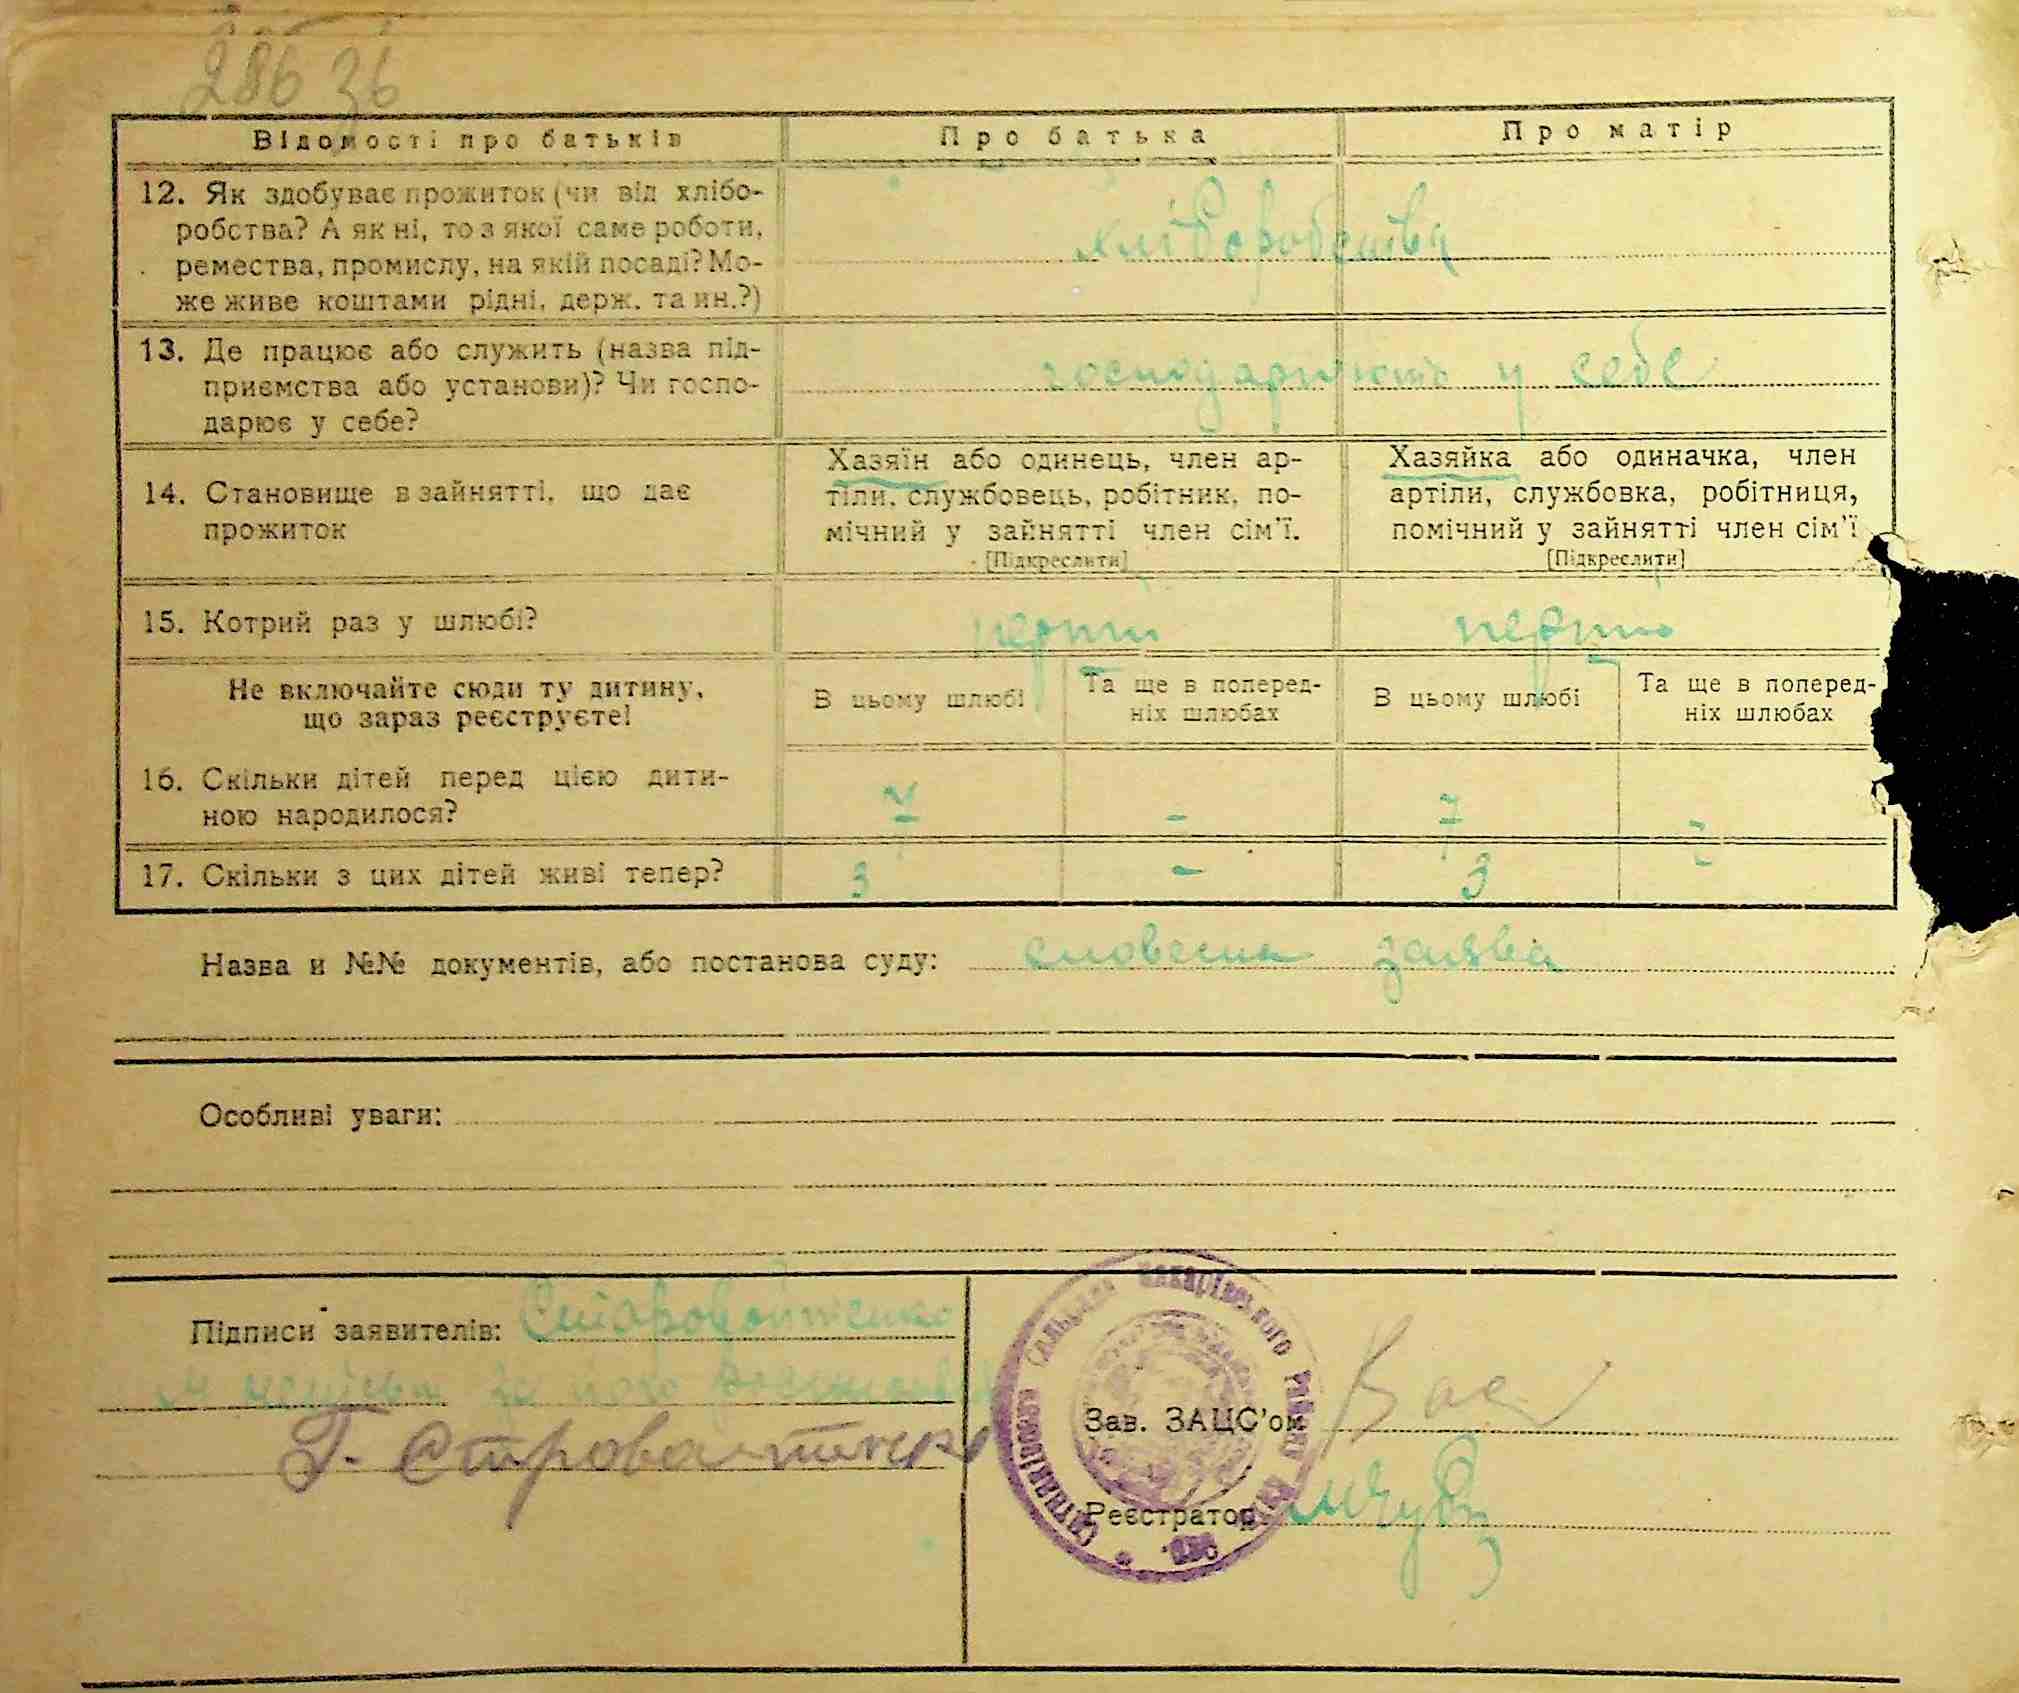 286 зб
Відомості про батьків Про батька Про матір
12. Як здобуває прожиток (чи від хлібо-
робства? А як ні, то з якої саме роботи,
ремества, промислу, на якій посаді? Мо-
же живе коштами рідні, держ. та ин.?)
хліборобства
13. Де працює або служить (назва під-
приємства або установи)? Чи госпо-
дарює у себе?
господарюють у себе
14. Становище в зайнятті, що дає
прожиток
Хазяїн або одинець, член ар-
тіли, службовець, робітник, по-
мічний у зайнятті член сім'ї.
[Підкреслити]
Хазяйка або одиначка, член
артіли, службовка, робітниця,
помічний у зайнятті член сім'ї
[Підкреслити]
15. Котрий раз у шлюбі?
Не включайте сюди ту дитину,
що зараз реєструєте!
В цьому шлюбі
Та ще в поперед-
ніх шлюбах
В цьому шлюбі
Та ще в поперед-
ніх шлюбах
16. Скільки дітей перед цією дити-
ною народилося?
- 7 -
17. Скільки з цих дітей живі тепер?
3 - 3 -
Назва и №№ документів, або постанова суду: словесна заява
Особливі уваги:
Підписи заявителів: Старовойтенко
за його
Г.
Макарівського району
Зав. ЗАЦС'ом
Реєстратор